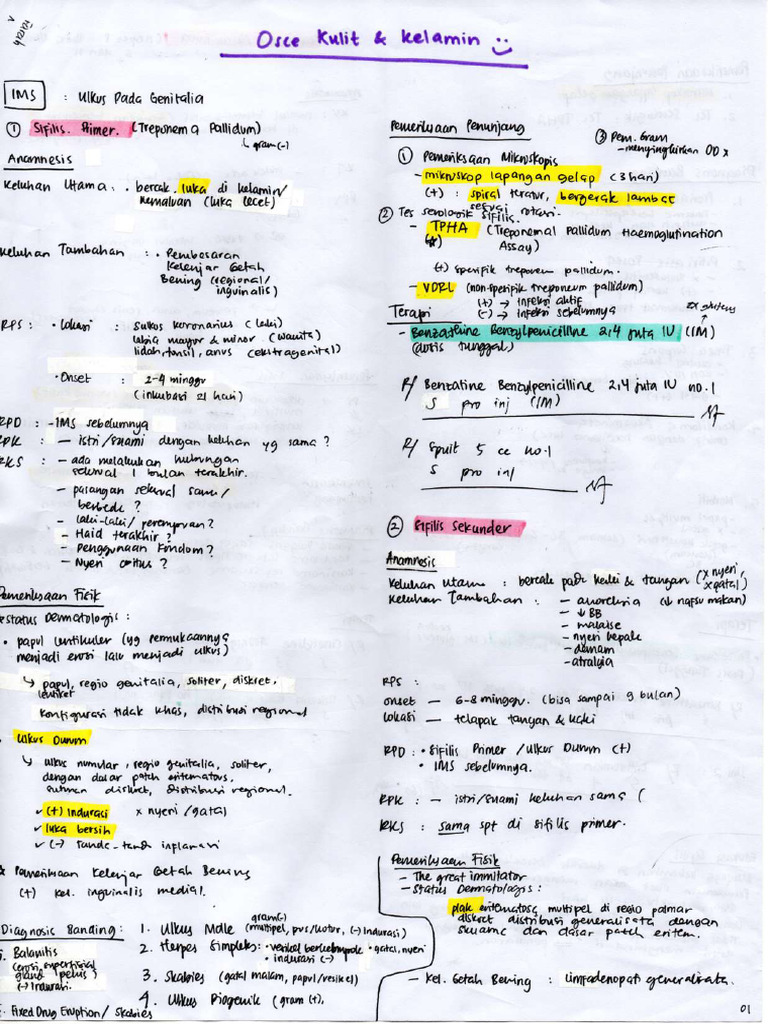 Osce Kulit & Kelamin
IMS : Ulkus Pada Genitalia
① Sifilis Primer. (Treponema Pallidum)
↳ gram (-)
Anamnesis
Keluhan Utama : • bercak luka di kelamin/
kemaluan (luka lecet)
Keluhan Tambahan : • Pembesaran
Kelenjar Getah
Bening (regional/
inguinalis)
RPS : • Lokasi : Sulkus koronarius (laki)
labia mayor & minor (wanita)
lidah, tonsil, anus (ekstragenital)
• Onset : 2-4 minggu
(inkubasi 21 hari)
RPD : - IMS sebelumnya
RPK : - istri/suami dengan keluhan yg sama ?
RKS : - ada melakukan hubungan
seksual 1 bulan terakhir.
- pasangan seksual sama/
berbeda ?
- laki-laki/perempuan ?
- Haid terakhir ?
- Penggunaan Kondom ?
- Nyeri coitus ?
Pemeriksaan Fisik
Status Dermatologis :
• papul lentikuler (yg permukaannya
menjadi erosi lalu menjadi ulkus)
↳ papul, regio genitalia, soliter, diskret,
lentiket
konfigurasi tidak khas, distribusi regional
Ulkus Durum
↳ ulkus numular, regio genitalia, soliter,
dengan dasar patch eritematous,
diskret, distribusi regional.
✓ (+) indurasi x nyeri/gatal
✓ luka bersih
✓ (-) tanda-tanda inflamasi
* Pemeriksaan Kelenjar Getah Bening
(+) kel. inguinalis medial.
Diagnosis Banding : 1. Ulkus Mole (multipel, pus/kotor, (-) indurasi)
gram(-)
2. Herpes Simpleks : • vesikel berkelompok • gatal, nyeri
• indurasi (-)
3. Skabies (gatal malam, papul/vesikel)
4. Ulkus Piogenik (gram (+),
Balanitis
(erosi superfisial
gland penis)
(-) Indurasi.
Fixed Drug Eruption/ Skabies
Pemeriksaan Penunjang
③ Pem. Gram
- menyingkirkan DD x
① Pemeriksaan Mikroskopis
- mikroskop lapangan gelap (3 hari)
(+) : spiral teratur, bergerak lambat
sesuai rotasi.
② Tes serologik sifilis.
- TPHA (Treponemal Pallidum Haemoglutination
Assay)
(+) spesifik treponem pallidum.
- VDRL (non-spesifik treponeum pallidum)
(+) → infeksi aktif
(-) → infeksi sebelumnya
Terapi
2x gluteus
- Benzathine Benzylpenicilline 2,4 juta IU (IM)
(dosis tunggal)
R/ Benzatine Benzylpenicilline 2,4 juta IU no. 1
S pro inj (IM)
R/ Spuit 5 cc no. 1
S pro inj
② Sifilis Sekunder
Anamnesis
Keluhan Utama : bercak pada kaki & tangan (x nyeri,
x gatal)
Keluhan Tambahan : - anorexia (↓ nafsu makan)
- ↓ BB
- malaise
- nyeri kepala
- demam
- atralgia
RPS :
onset - 6-8 minggu. (bisa sampai 9 bulan)
lokasi - telapak tangan & kaki
RPD : • Sifilis Primer / Ulkus Durum (+)
• IMS sebelumnya.
RPK : - istri/suami keluhan sama (
RKS : sama spt di sifilis primer.
Pemeriksaan Fisik
- The great immitator
- Status Dermatologis :
plak eritematosa, multipel di regio palmar
diskret distribusi generalisata dengan
skuama dan dasar patch eritem.
- Kel. Getah Bening : limfadenopati generalisata.
01